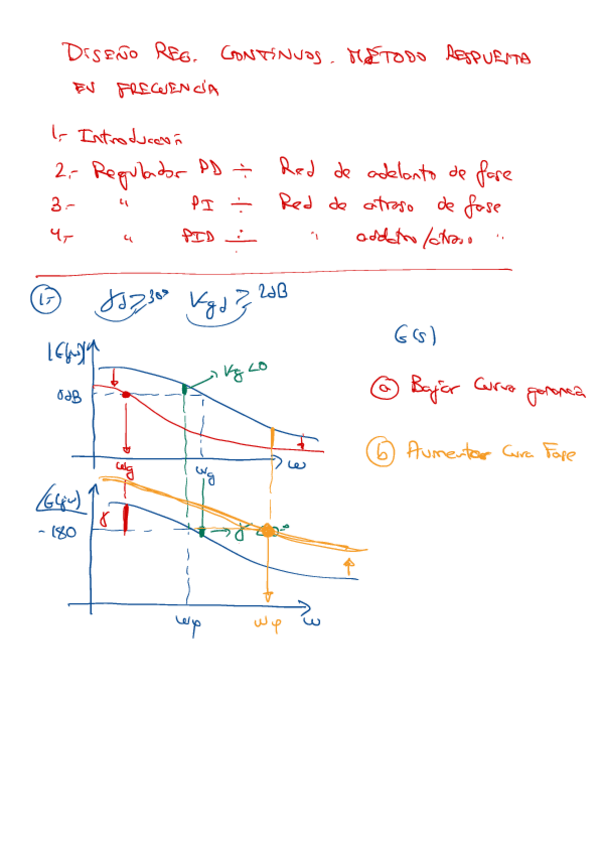 DISEÑO REG. CONTÍNUOS. MÉTODO RESPUESTA
EN FRECUENCIA
1.- Introducción
2.- Regulador PD ÷ Red de adelanto de fase
3.- " PI ÷ Red de atraso de fase
4.- " PID ÷ " adelanto/atraso "
1.- γd ≥ 30º Kgd ≥ 2dB
G(s)
|G(jω)|
Kg<0
0dB
a Bajar Curva ganancia
ωg ωg ω
b Aumentar Curva Fase
/G(jω)
γ
-180
ωφ ωφ ω